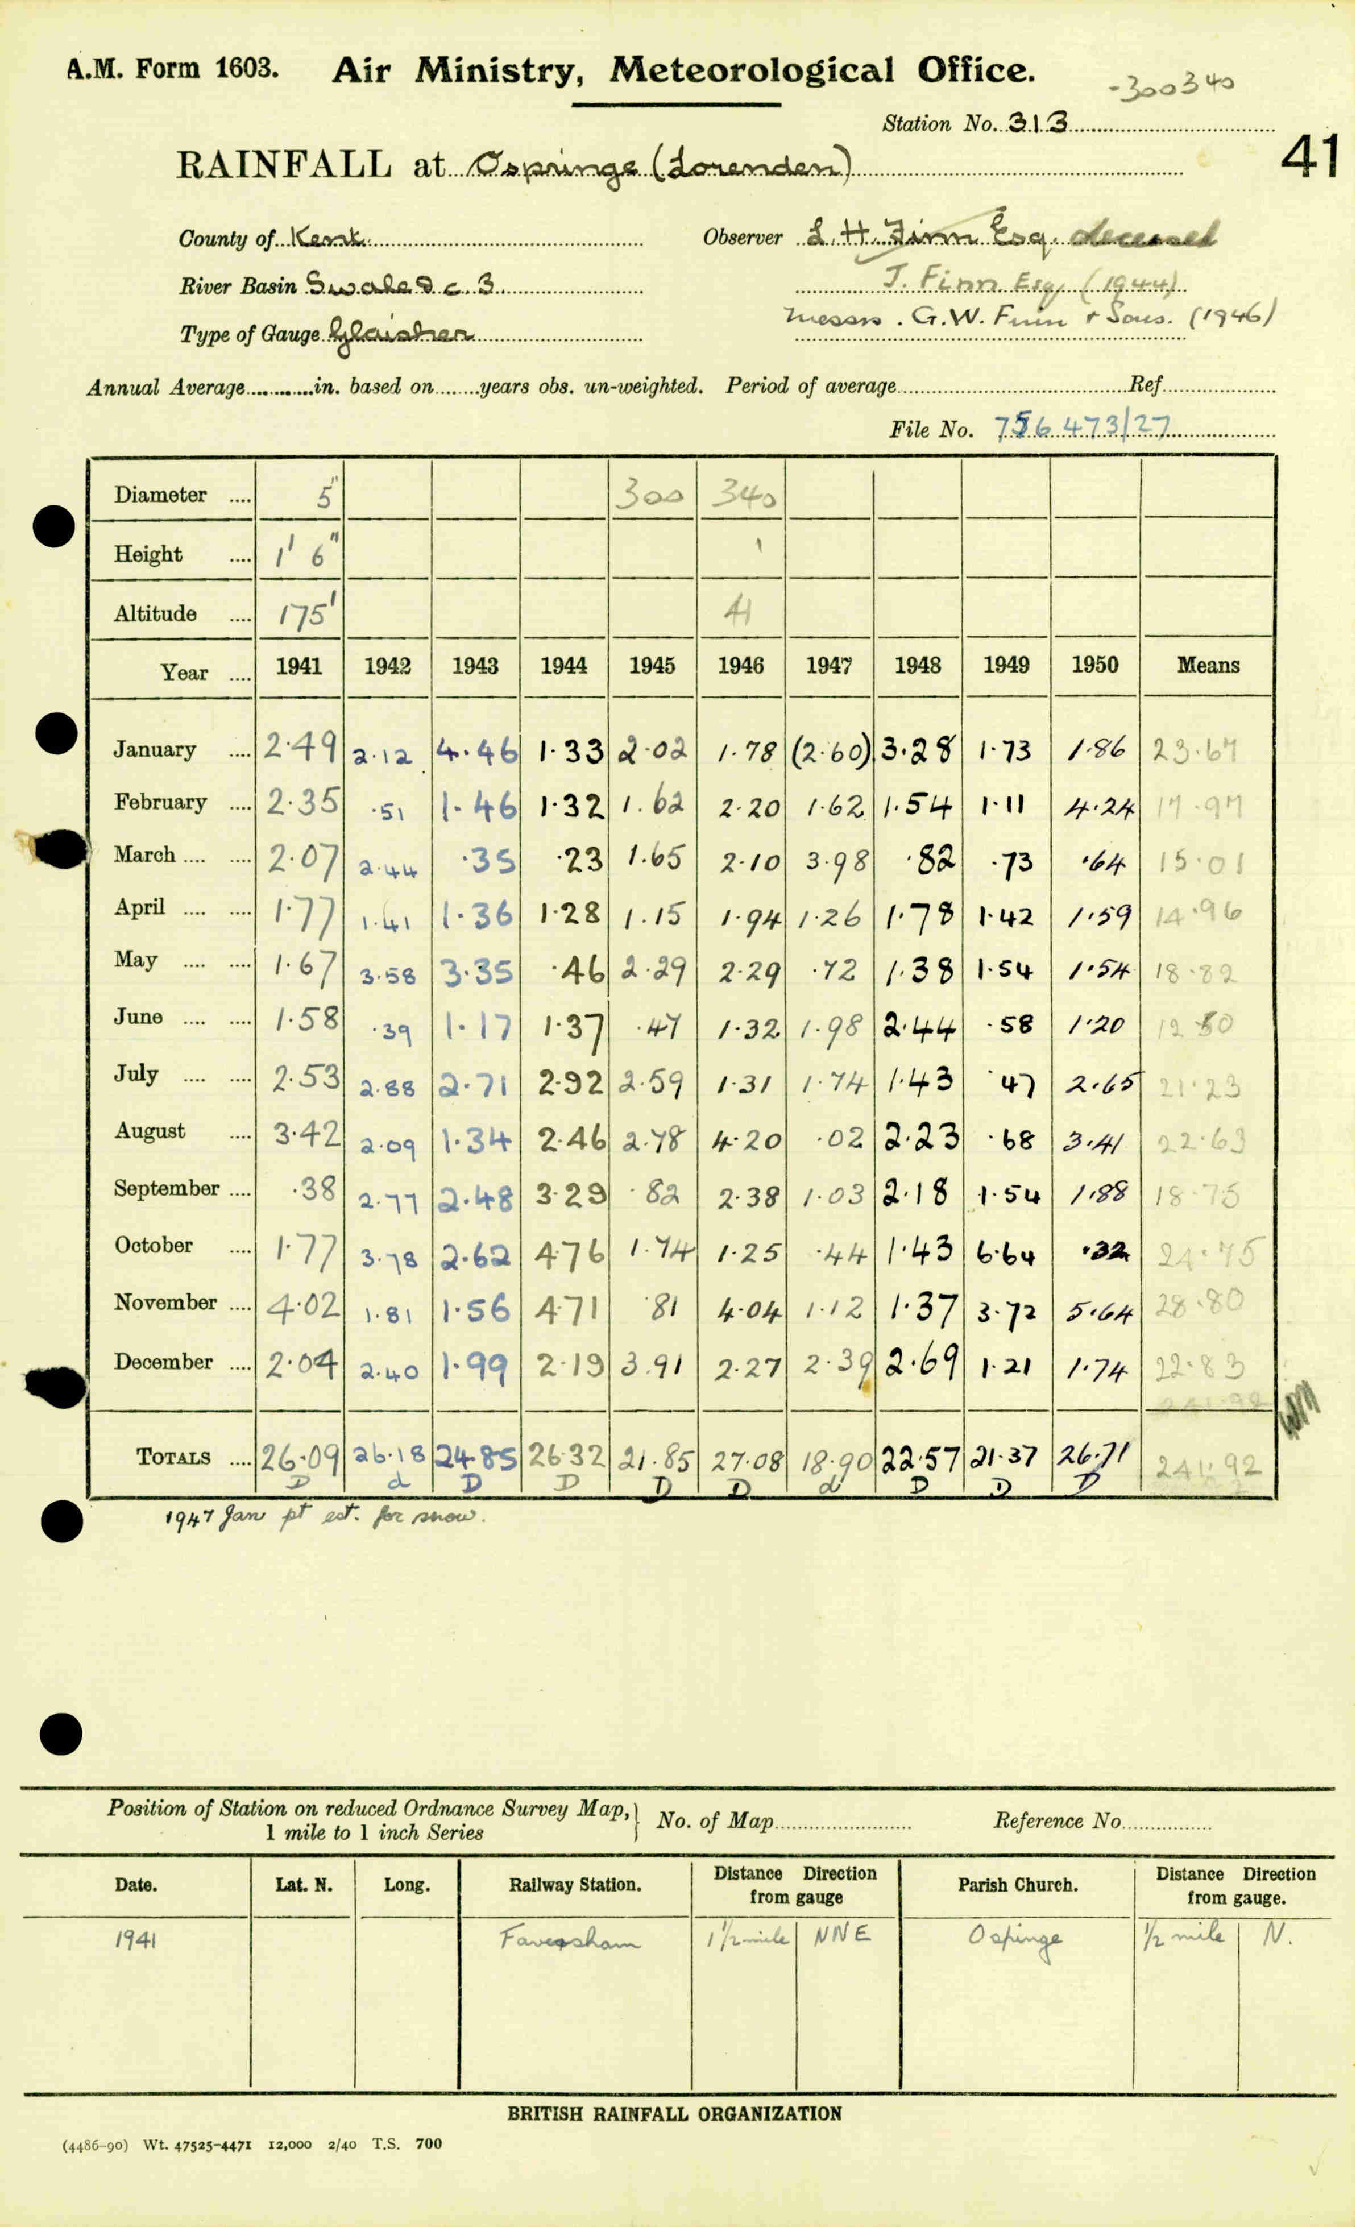 A.M. Form 1603. Air Ministry, Meteorological Office.
-300340
Station No. 313
41
RAINFALL at Ospringe (Lorenden)
County of Kent. Observer L. H. Finn Esq. deceased
River Basin Swale D c. 3 J. Finn Esq (1944)
Type of Gauge Glaisher Messrs. G.W. Finn & Sons. (1946)
Annual Average in. based on years obs. un-weighted. Period of average Ref.
File No. 756473/27
Diameter .... 5" 300 340
Height .... 1' 6" 1
Altitude .... 175' 41
Year .... 1941 1942 1943 1944 1945 1946 1947 1948 1949 1950 Means
January .... 2.49 2.12 4.46 1.33 2.02 1.78 (2.60) 3.28 1.73 1.86 23.67
February .... 2.35 .51 1.46 1.32 1.62 2.20 1.62 1.54 1.11 4.24 17.97
March .... .... 2.07 2.44 .35 .23 1.65 2.10 3.98 .82 .73 .64 15.01
April .... .... 1.77 1.41 1.36 1.28 1.15 1.94 1.26 1.78 1.42 1.59 14.96
May .... .... 1.67 3.58 3.35 .46 2.29 2.29 .72 1.38 1.54 1.54 18.82
June .... .... 1.58 .39 1.17 1.37 .47 1.32 1.98 2.44 .58 1.20 12.50
July .... .... 2.53 2.88 2.71 2.92 2.59 1.31 1.74 1.43 .47 2.65 21.23
August .... 3.42 2.09 1.34 2.46 2.78 4.20 .02 2.23 .68 3.41 22.63
September .... .38 2.77 2.48 3.29 .82 2.38 1.03 2.18 1.54 1.88 18.75
October .... 1.77 3.78 2.62 4.76 1.74 1.25 .44 1.43 6.64 .32 24.75
November .... 4.02 1.81 1.56 4.71 .81 4.04 1.12 1.37 3.72 5.64 28.80
December .... 2.04 2.40 1.99 2.19 3.91 2.27 2.39 2.69 1.21 1.74 22.83
241.92
TOTALS .... 26.09 26.18 24.85 26.32 21.85 27.08 18.90 22.57 21.37 26.71 241.92
D d D D D D d D D D
1947 Jan pt est. for snow.
Position of Station on reduced Ordnance Survey Map, No. of Map Reference No.
1 mile to 1 inch Series
Date. Lat. N. Long. Railway Station. Distance from gauge Direction Parish Church. Distance from gauge. Direction
1941 Faversham 1 1/2 mile NNE Ospinge 1/2 mile N.
BRITISH RAINFALL ORGANIZATION
(4486-90) Wt. 47525-4471 12,000 2/40 T.S. 700